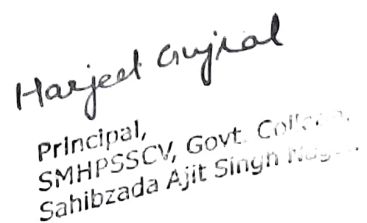 Harjeet Gujral
Principal,
SMHPSSCV, Govt. College,
Sahibzada Ajit Singh Nagar